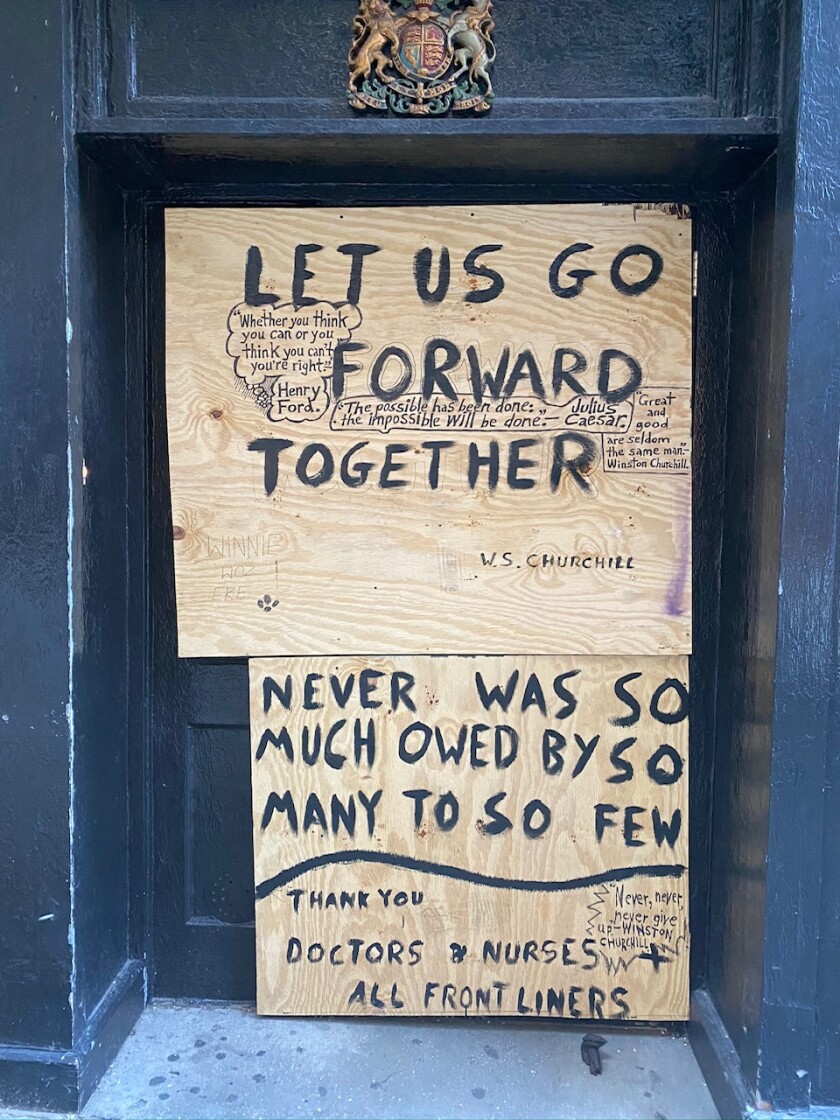 LET US GO
"Whether you think
you can or you
think you can't
you're right."
Henry
Ford.
FORWARD
"The possible has been done:
the impossible Will be done."—
Julius
Caesar.
"Great
and
good
are seldom
the same man."–
Winston Churchill.
TOGETHER
WINNIE
WOZ
ERE!
W.S. CHURCHILL
NEVER WAS SO
MUCH OWED BY SO
MANY TO SO FEW
THANK YOU
DOCTORS & NURSES +
ALL FRONT LINERS
"Never, never,
never give
up."–WINSTON
CHURCHILL